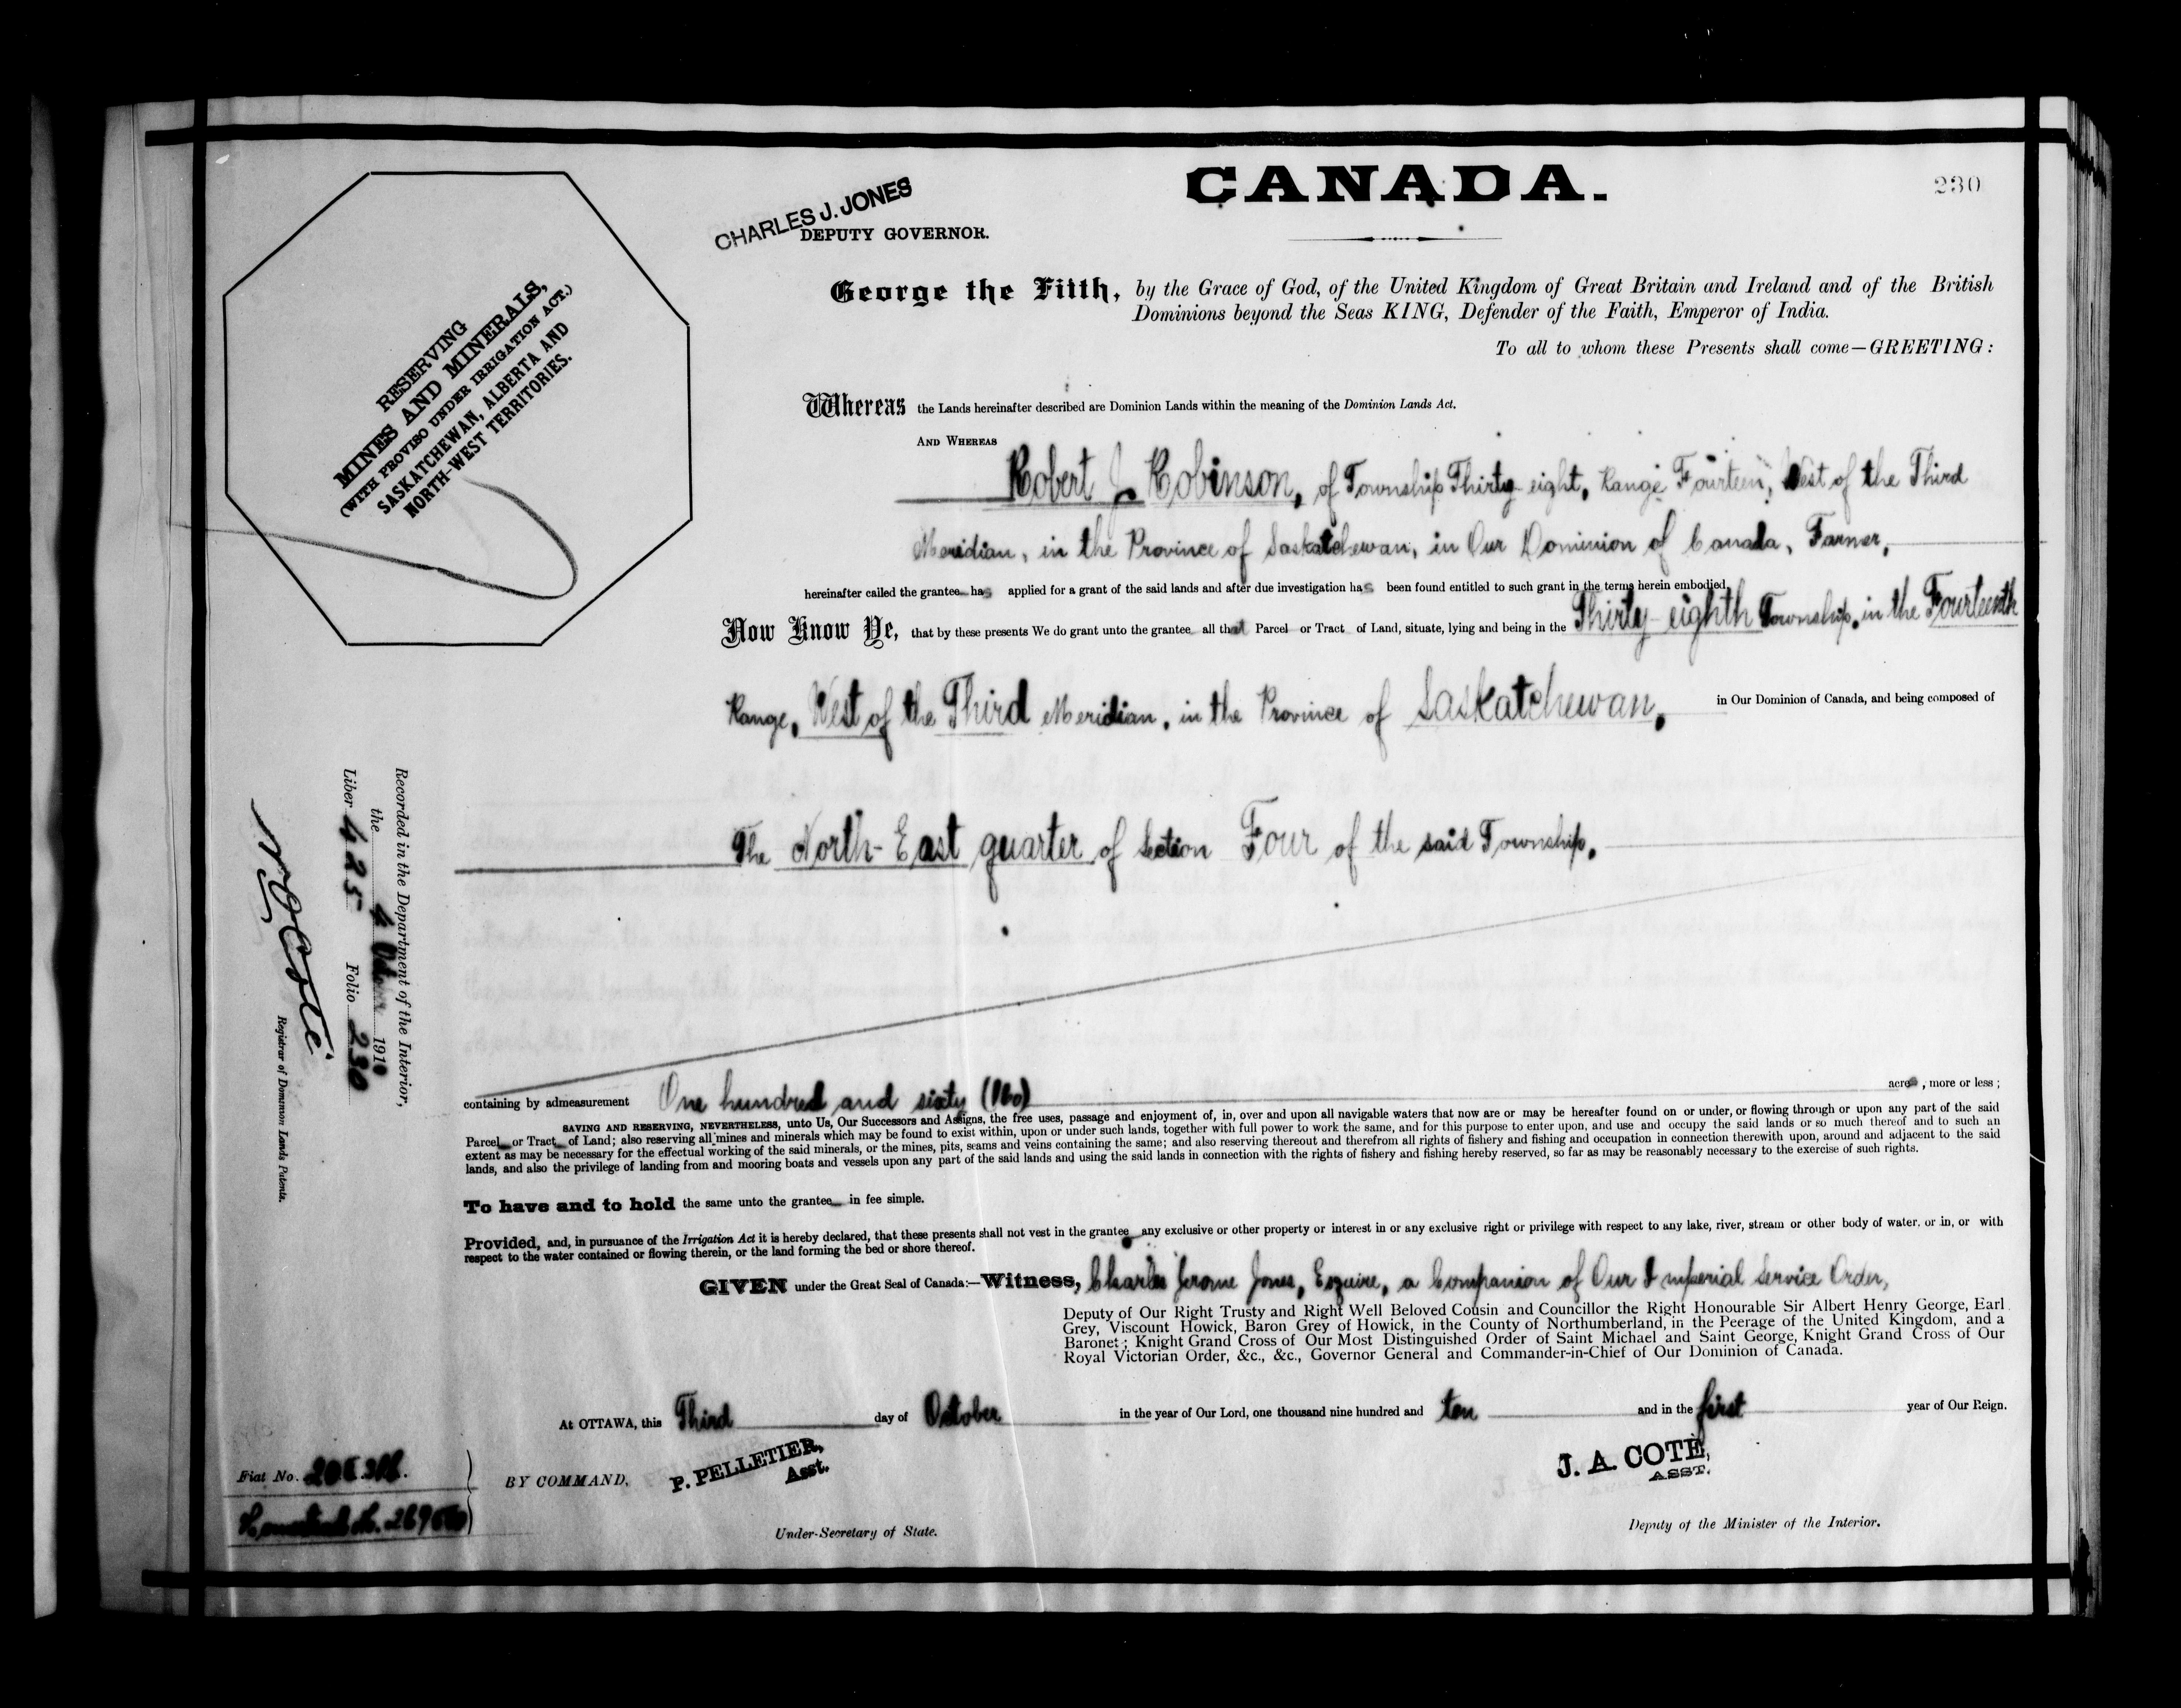 CANADA.
230
CHARLES J. JONES
DEPUTY GOVERNOR.
RESERVING
MINES AND MINERALS,
(WITH PROVISO UNDER IRRIGATION ACT.)
SASKATCHEWAN, ALBERTA AND
NORTH-WEST TERRITORIES.
George the Fifth, by the Grace of God, of the United Kingdom of Great Britain and Ireland and of the British
Dominions beyond the Seas KING, Defender of the Faith, Emperor of India.
To all to whom these Presents shall come—GREETING:
Whereas the Lands hereinafter described are Dominion Lands within the meaning of the Dominion Lands Act.
AND WHEREAS
Robert J. Robinson, of Township Thirty eight, Range Fourteen, West of the Third
Meridian, in the Province of Saskatchewan, in Our Dominion of Canada, Farmer,
hereinafter called the grantee has applied for a grant of the said lands and after due investigation has been found entitled to such grant in the terms herein embodied.
Now Know Ye, that by these presents We do grant unto the grantee all that Parcel or Tract of Land, situate, lying and being in the Thirty-eighth Township, in the Fourteenth
Range, West of the Third Meridian, in the Province of Saskatchewan, in Our Dominion of Canada, and being composed of
The North-East quarter of Section Four of the said Township.
containing by admeasurement One hundred and sixty (160) acres, more or less;
SAVING AND RESERVING, NEVERTHELESS, unto Us, Our Successors and Assigns, the free uses, passage and enjoyment of, in, over and upon all navigable waters that now are or may be hereafter found on or under, or flowing through or upon any part of the said
Parcel or Tract of Land; also reserving all mines and minerals which may be found to exist within, upon or under such lands, together with full power to work the same, and for this purpose to enter upon, and use and occupy the said lands or so much thereof and to such an
extent as may be necessary for the effectual working of the said minerals, or the mines, pits, seams and veins containing the same; and also reserving thereout and therefrom all rights of fishery and fishing and occupation in connection therewith upon, around and adjacent to the said
lands, and also the privilege of landing from and mooring boats and vessels upon any part of the said lands and using the said lands in connection with the rights of fishery and fishing hereby reserved, so far as may be reasonably necessary to the exercise of such rights.
To have and to hold the same unto the grantee in fee simple.
Provided, and, in pursuance of the Irrigation Act it is hereby declared, that these presents shall not vest in the grantee any exclusive or other property or interest in or any exclusive right or privilege with respect to any lake, river, stream or other body of water, or in, or with
respect to the water contained or flowing therein, or the land forming the bed or shore thereof.
GIVEN under the Great Seal of Canada:—Witness, Charles Jerome Jones, Esquire, a Companion of Our Imperial Service Order,
Deputy of Our Right Trusty and Right Well Beloved Cousin and Councillor the Right Honourable Sir Albert Henry George, Earl
Grey, Viscount Howick, Baron Grey of Howick, in the County of Northumberland, in the Peerage of the United Kingdom, and a
Baronet; Knight Grand Cross of Our Most Distinguished Order of Saint Michael and Saint George, Knight Grand Cross of Our
Royal Victorian Order, &c., &c., Governor General and Commander-in-Chief of Our Dominion of Canada.
At OTTAWA, this Third day of October in the year of Our Lord, one thousand nine hundred and ten and in the first year of Our Reign.
BY COMMAND,
P. PELLETIER,
Asst.
Under-Secretary of State.
J. A. COTE,
ASST.
Deputy of the Minister of the Interior.
Fiat No.
Recorded in the Department of the Interior,
the 4 1910
Liber 425 Folio 230
N O Coté
Registrar of Dominion Lands Patents.